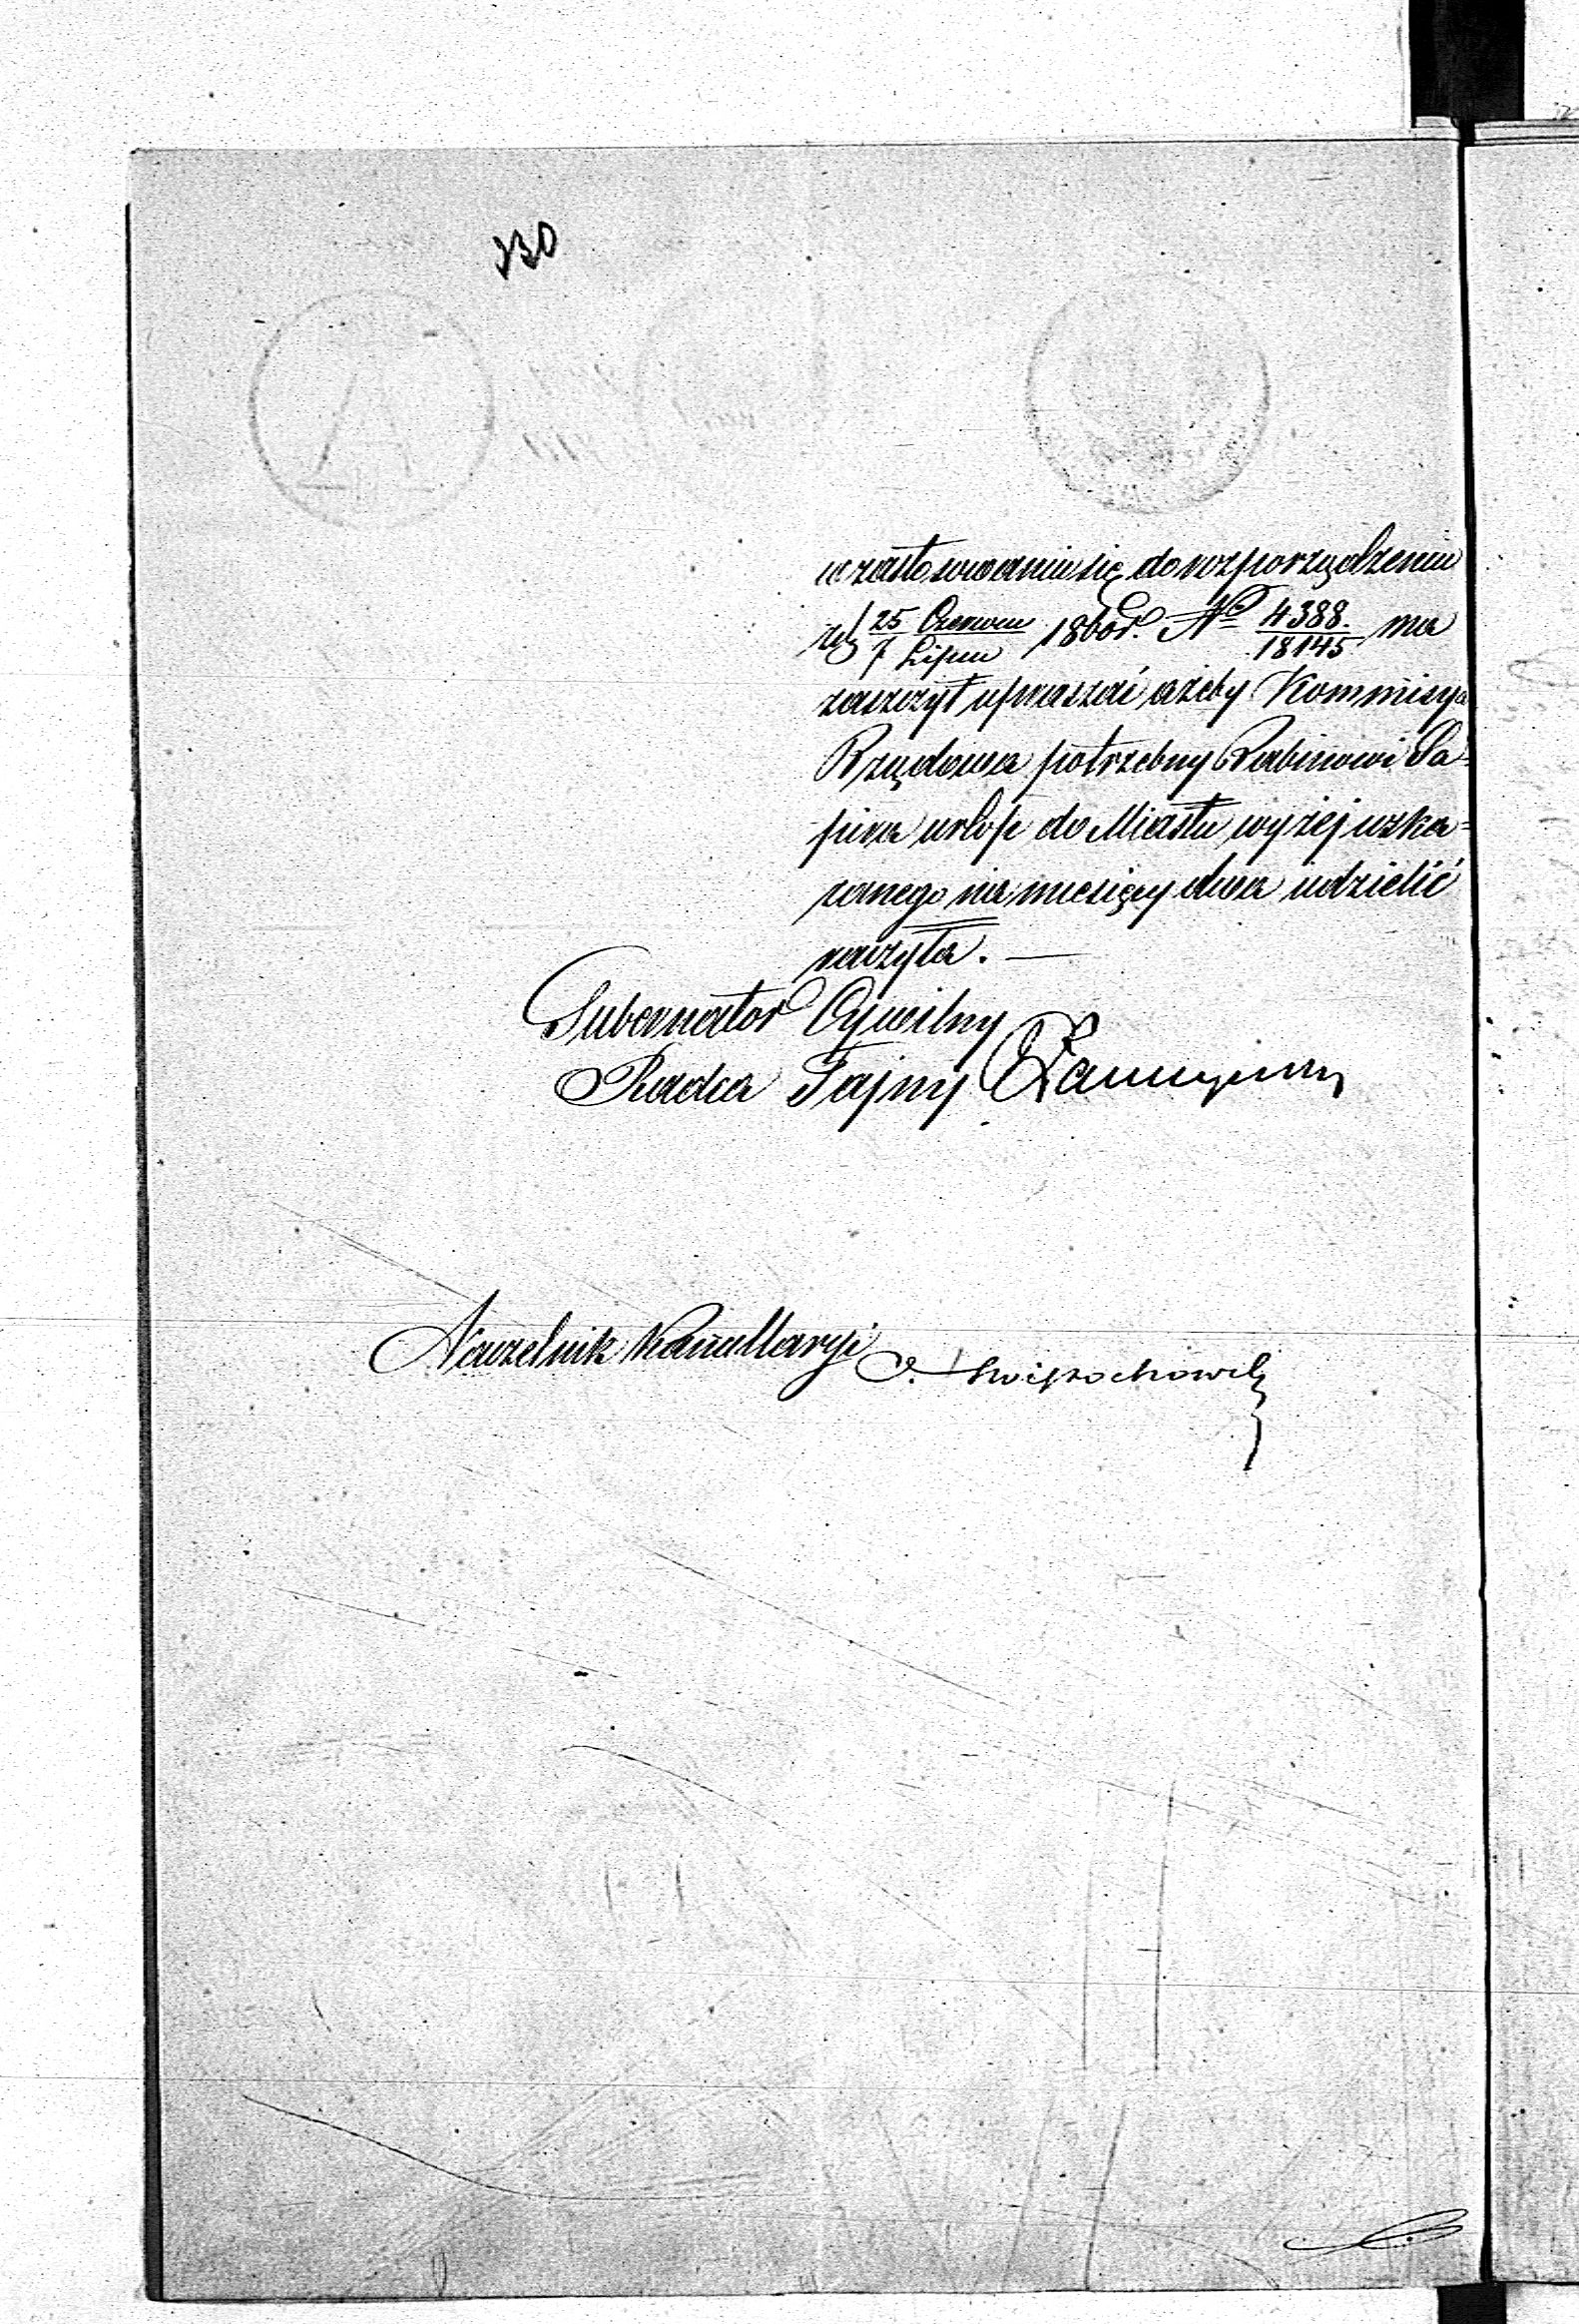 230
w zastosowaniu się do rozporządzenia
z dnia 25 Czerwca / 7 Lipca 1860 r. № 4388. / 18145 ma
zaszczyt upraszać ażeby Kommisya
Rządowa potrzebny Rabinowi Sa=
pira urlop do Miasta wyżej wska=
zanego na miesięcy dwa udzielić
raczyła. —
Gubernator Cywilny
Radca Tajny
Naczelnik Kancellaryi